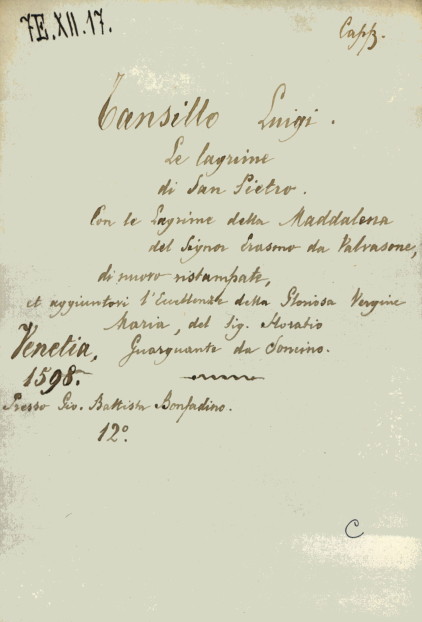 7E.XII.17.
Capp.
Tansillo Luigi.
Le lagrime
di San Pietro.
Con le Lagrime della Maddalena
del Signor Erasmo da Valvasone,
di nuovo ristampate,
et aggiuntovi l'Eccellenze della Gloriosa Vergine
Maria, del Sig. Horatio
Guarguante da Soncino.
Venetia,
1598.
Presso Gio. Battista Bonfadino.
12°.
C